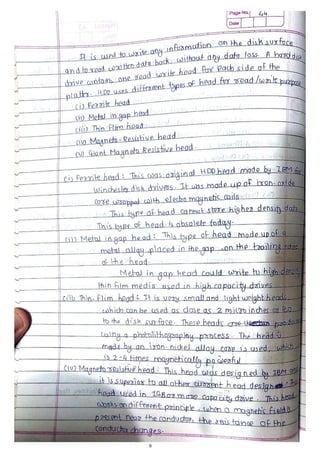 Page No. 44
Date
It is used to write any information on the disk surface
and to read written data back without any data loss. A hard disk
drive contains one read write head for each side of the
platter. HDD uses different types of head for read/write purpose
(i) Ferrite head
(ii) Metal in gap head
(iii) Thin film head
(iv) Magneto-Resistive head
(v) Giant Magneto Resistive head
(i) Ferrite head : This was original HDD head made by IBM for
Winchester disk drivers. It was made up of iron-oxide
core wrapped with electo magnetic coils
This type of head cannot store higher density data
This type of head is obsolete today.
(ii) Metal in gap head : This type of head made up of a
metal alloy placed in the gap on the trailing edge
of the head.
Metal in gap head could write to high density
thin film media used in high capacity drives
(iii) Thin-film head : It is very small and light weight heads
which can be used as close as 2 microinches or less
to the disk surface. These heads are produced
using a photolithography process. The head is
made by an iron-nickel alloy core is used, which
is 2-4 times magnetically powerful
(iv) Magneto resistive head : This head was designed by IBM and
it is superior to all other current head design. This
head used in 1GB or more capacity drive. This head
works on different principle, when a magnetic field is
present near the conductor, the resistance of the
conductor changes.